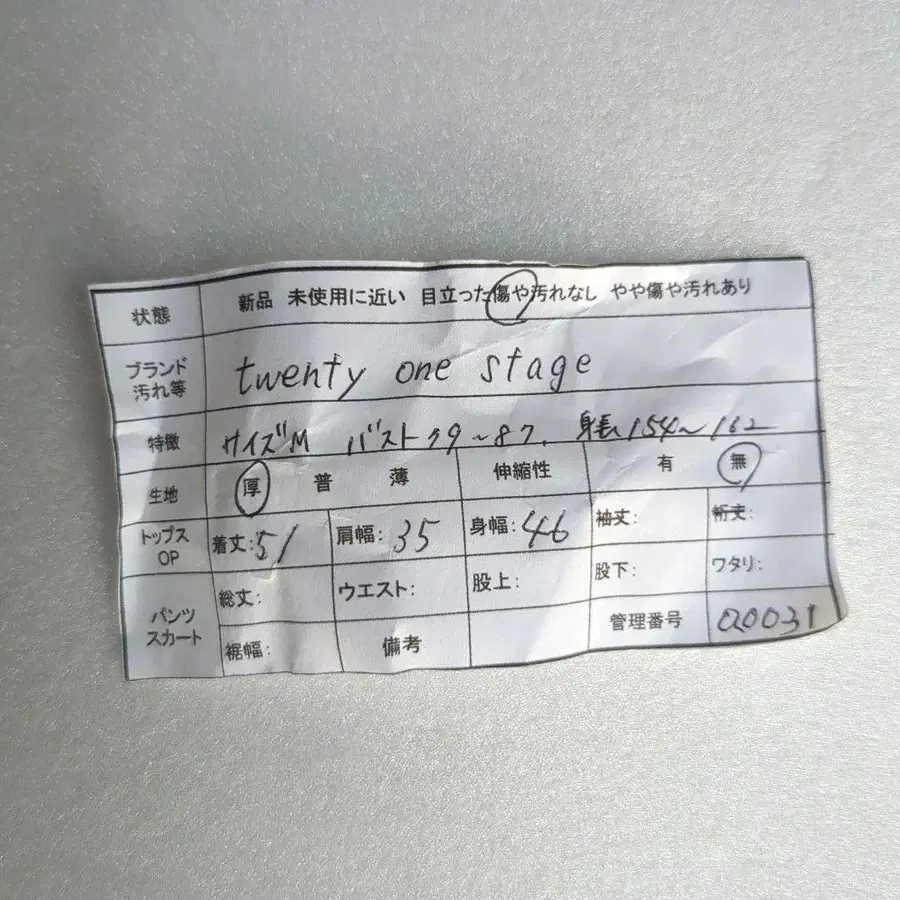 状態 新品 未使用に近い 目立った傷や汚れなし やや傷や汚れあり
ブランド
汚れ等 twenty one stage
特徴 サイズM バスト79~87. 身長154~162
生地 厚 普 薄 伸縮性 有 無
トップス
OP 着丈:51 肩幅:35 身幅:46 袖丈: 裄丈:
パンツ
スカート 総丈: ウエスト: 股上: 股下: ワタリ:
裾幅: 備考 管理番号 Q0031